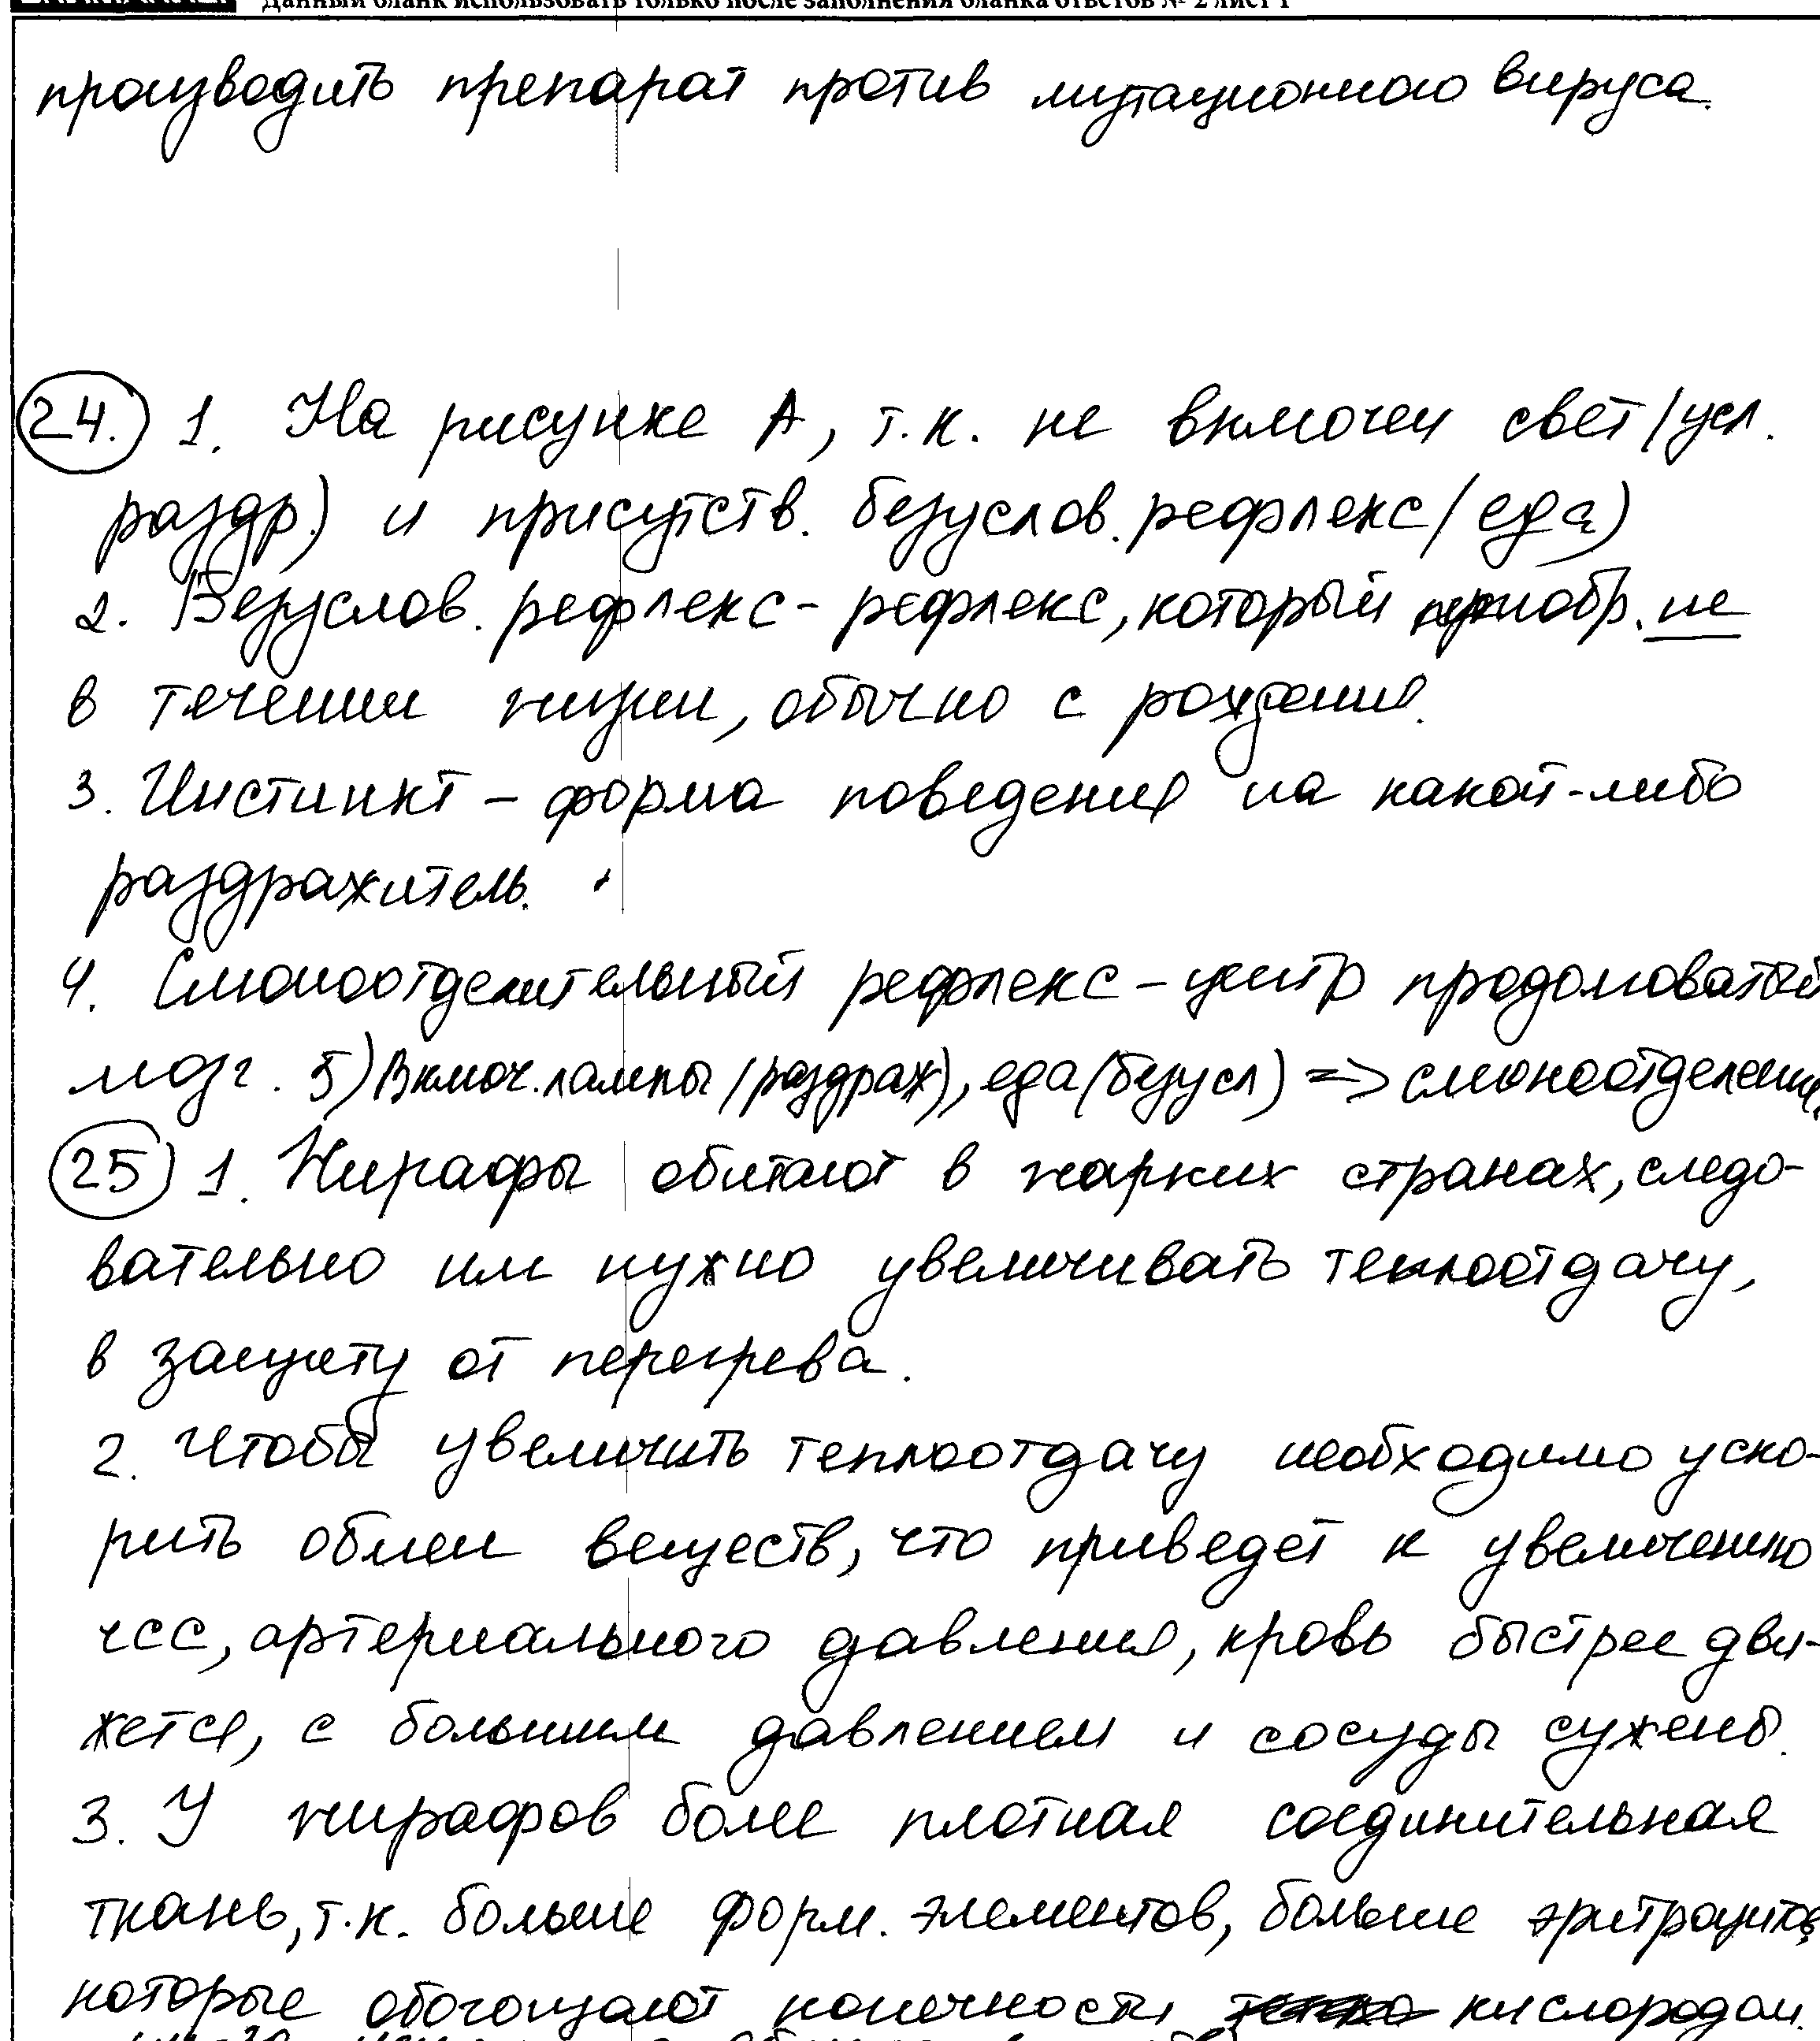 Данный бланк использовать только после заполнения бланка ответов № 2 лист 1
производить препарат против мутационного вируса.
24. 1. На рисунке А, т.к. не включен свет (усл.
раздр.) и присутств. безуслов. рефлекс (еда)
2. Безуслов. рефлекс - рефлекс, который приобр. не
в течении жизни, обычно с рождения.
3. Инстинкт - форма поведения на какой-либо
раздражитель.
4. Слюноотделительный рефлекс - центр продолговатый
мозг. 5) Включ. лампы (раздраж), еда (безусл) => слюноотделение.
25 1. Жирафы обитают в жарких странах, следо-
вательно им нужно увеличивать теплоотдачу,
в защиту от перегрева.
2. Чтобы увеличить теплоотдачу необходимо уско-
рить обмен веществ, что приведет к увеличению
чсс, артериального давления, кровь быстрее дви-
жется, с большим давлением и сосуды сужены.
3. У жирафов более плотная соединительная
ткань, т.к. больше форм. элементов, больше эритроцитов,
которые обогощают конечности кислородом.